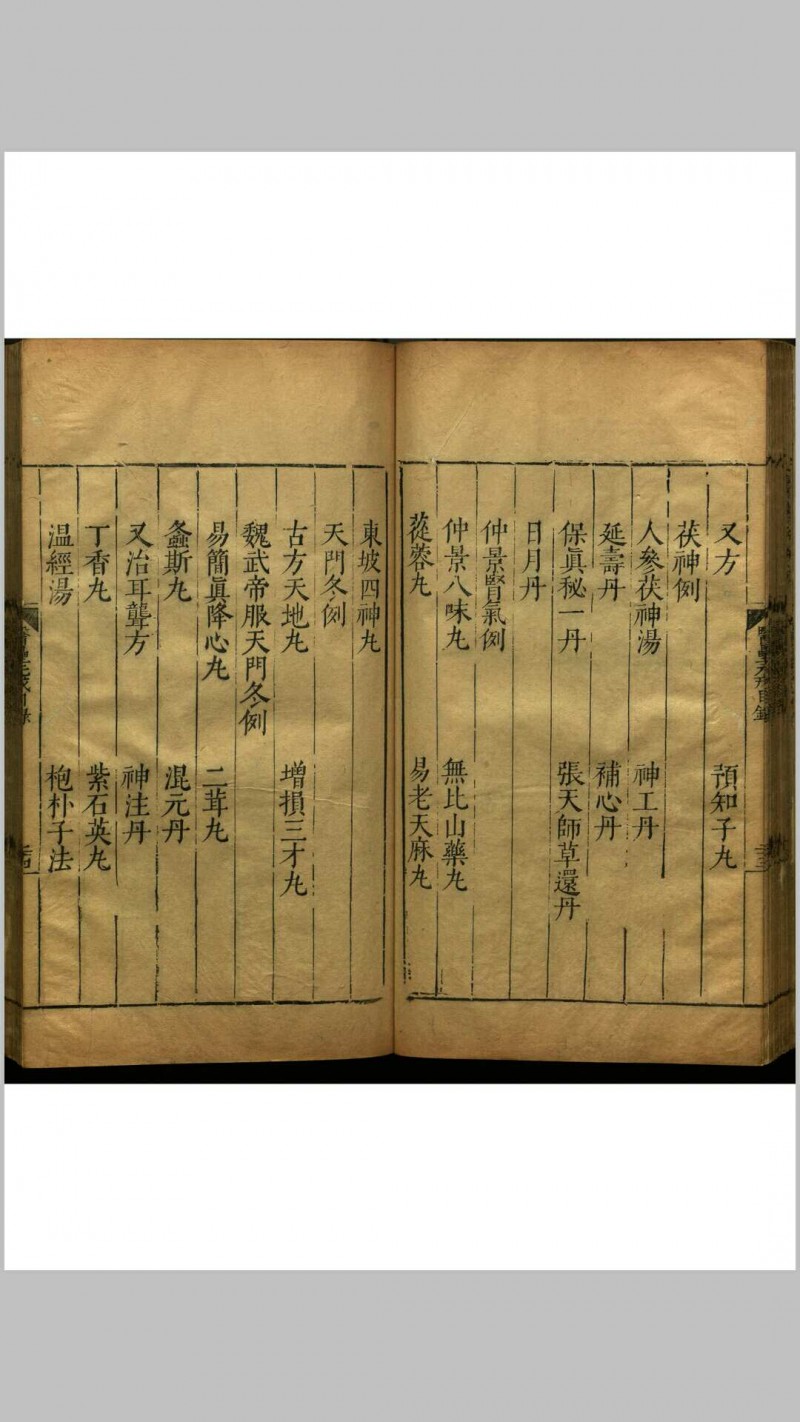 又方　預知子丸
茯神例
人參茯神湯　神工丹
延壽丹　補心丹
保眞秘一丹　張天師草還丹
日月丹
仲景腎氣例
仲景八味丸　無比山藥丸
蓯蓉丸　易老天麻丸
東坡四神丸
天門冬例
古方天地丸　增損三才丸
魏武帝服天門冬例
易簡眞降心丸　二茸丸
螽斯丸　混元丹
又治耳聾方　神注丹
丁香丸　紫石英丸
温經湯　枹朴子法